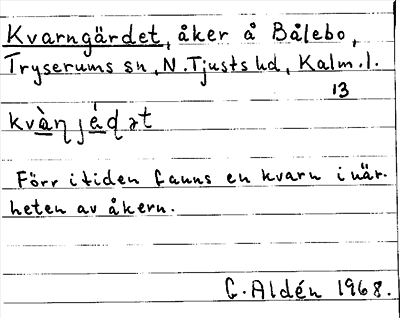 Kvarngärdet, åker å Bålebo,
Tryserums sn, N. Tjusts hd, Kalm. l.
13
kvàɳ jéɖ ət
Förr i tiden fanns en kvarn i när-
heten av åkern.
G. Aldén 1968.